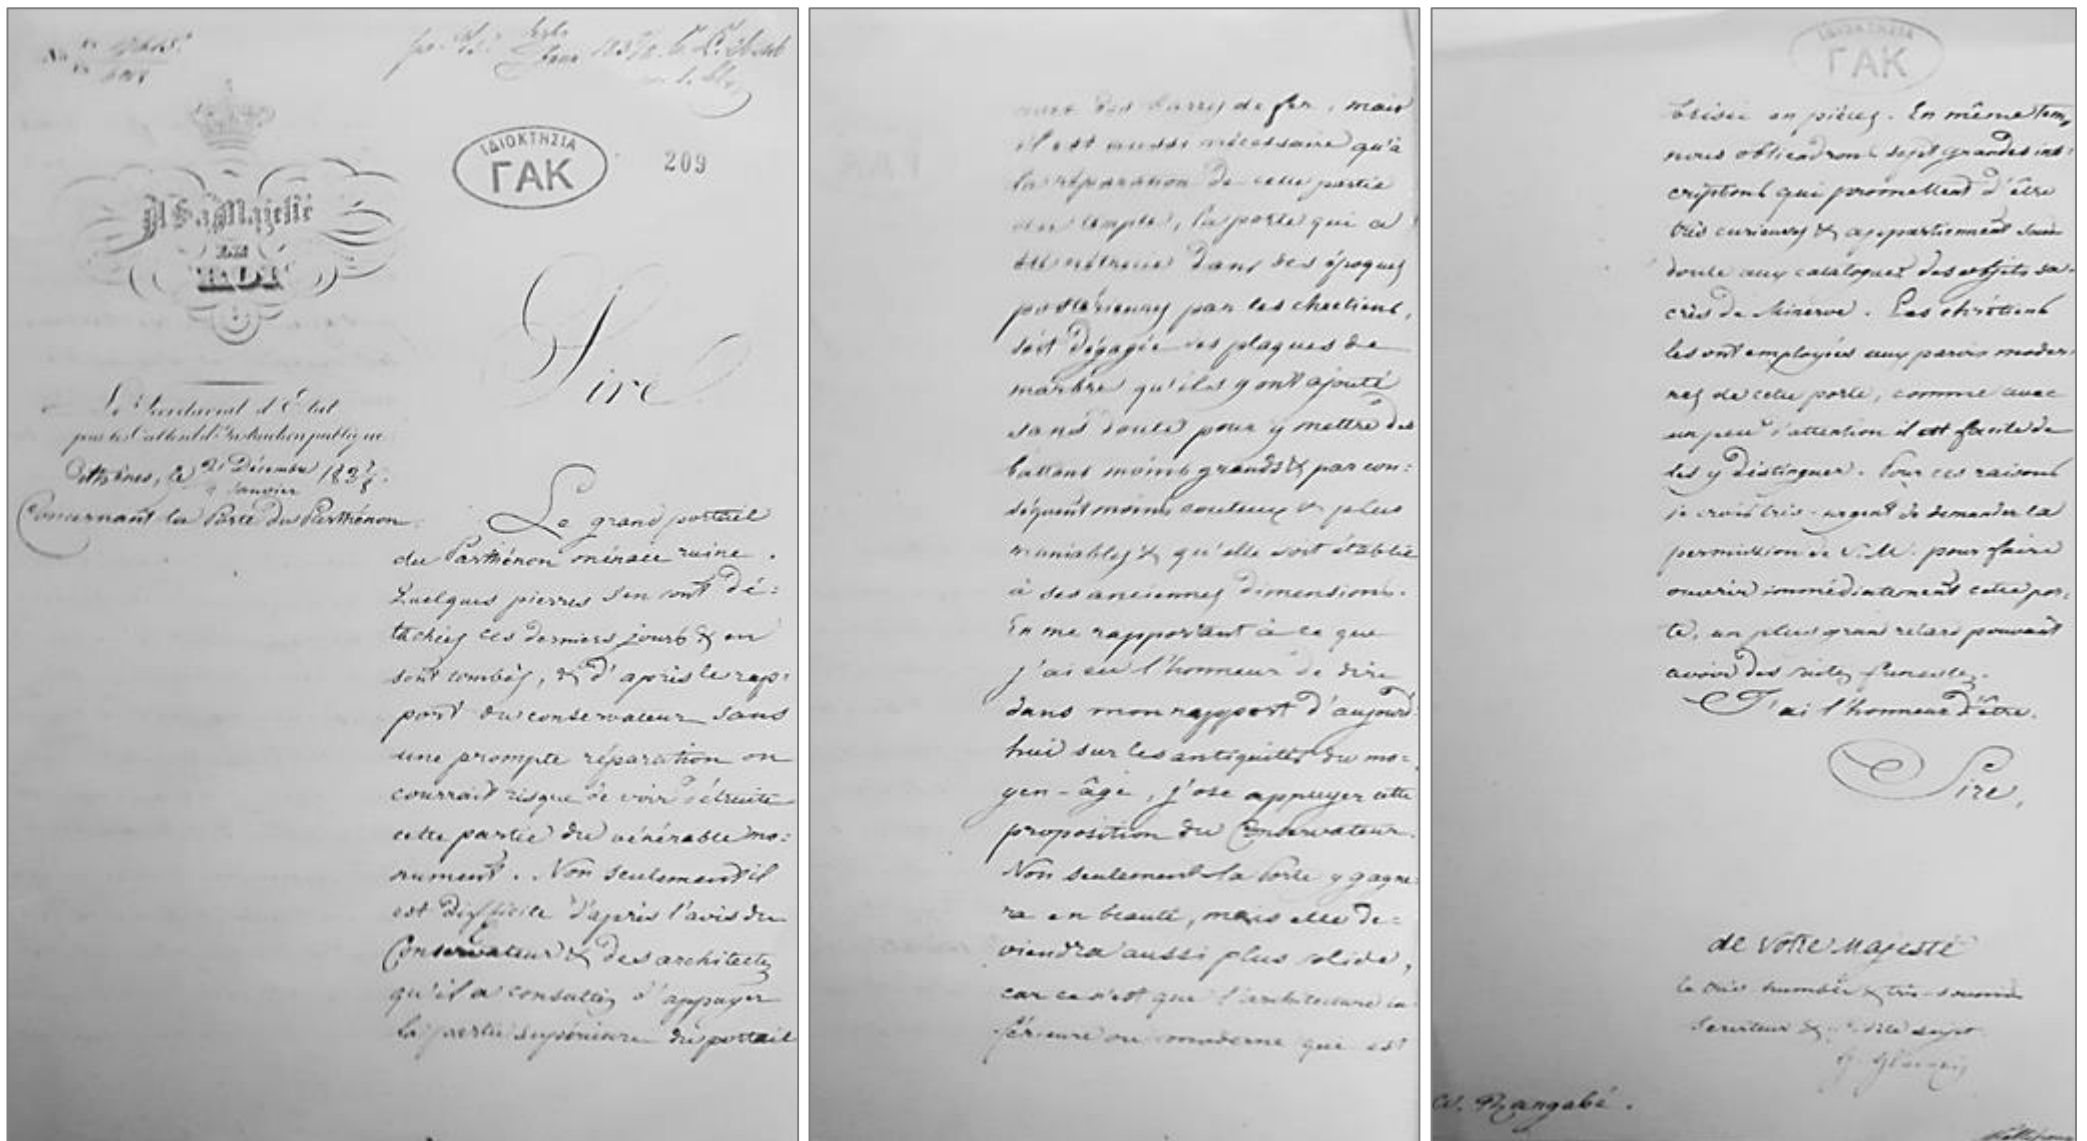 ΙΔΙΟΚΤΗΣΙΑ
ΓΑΚ
209
A Sa Majesté
le
ROI
Sire
Le Secrétariat d'Etat
pour les Cultes et l'Instruction publique
Athènes, le 21 Décembre 1837/8.
Janvier
Concernant la Porte du Parthénon
Le grand portail
du Parthénon ménace ruine.
Quelques pierres s'en sont dé=
tachées ces derniers jours & en
sont tombés, & d'après le rap=
port du conservateur sans
une prompte réparation on
courrait risque de voir détruite
cette partie du vénérable mo=
nument. Non seulement il
est difficile d'après l'avis du
Conservateur & des architectes
qu'il a consultés d'appuyer
la partie supérieure du portail
avec des barres de fer, mais
il est aussi nécessaire qu'à
la réparation de cette partie
du temple, la porte qui a
été rétrecie dans des époques
postérieures par les chrétiens,
soit dégagée des plaques de
marbre qu'ils y ont ajouté
sans doute pour y mettre des
battants moins grands & par con=
séquent moins couteux & plus
maniables & qu'elle soit établie
à ses anciennes dimensions.
En me rapportant à ce que
j'ai eu l'honneur de dire
dans mon rapport d'aujourd'
hui sur les antiquités du mo=
yen-âge, j'ose appuyer cette
proposition du Conservateur.
Non seulement la Porte y gagne=
ra en beauté, mais elle de=
viendra aussi plus solide,
car ce n'est que l'architecture in
férieure ou moderne qui est
ΙΔΙΟΚΤΗΣΙΑ
ΓΑΚ
brisée en pièces. En même tems
nous obtiendrons sept grandes ins=
criptions qui promettent d'être
très curieuses & appartiennent sans
doute aux catalogues des objets sa=
crés de Minerve. Les chrétiens
les ont employées aux parois moder=
nes de cette porte, comme avec
un peu d'attention il est facile de
les y distinguer. Pour ces raisons
je crois très-urgent de demander la
permission de V. M. pour faire
ouvrir immédiatement cette por=
te, un plus grand retard pouvant
avoir des suites funestes.
J'ai l'honneur d'être.
Sire,
de Votre Majesté
le très humble & très soumis
Serviteur & fidèle sujet
G. Glarakis
A. Rangabé.